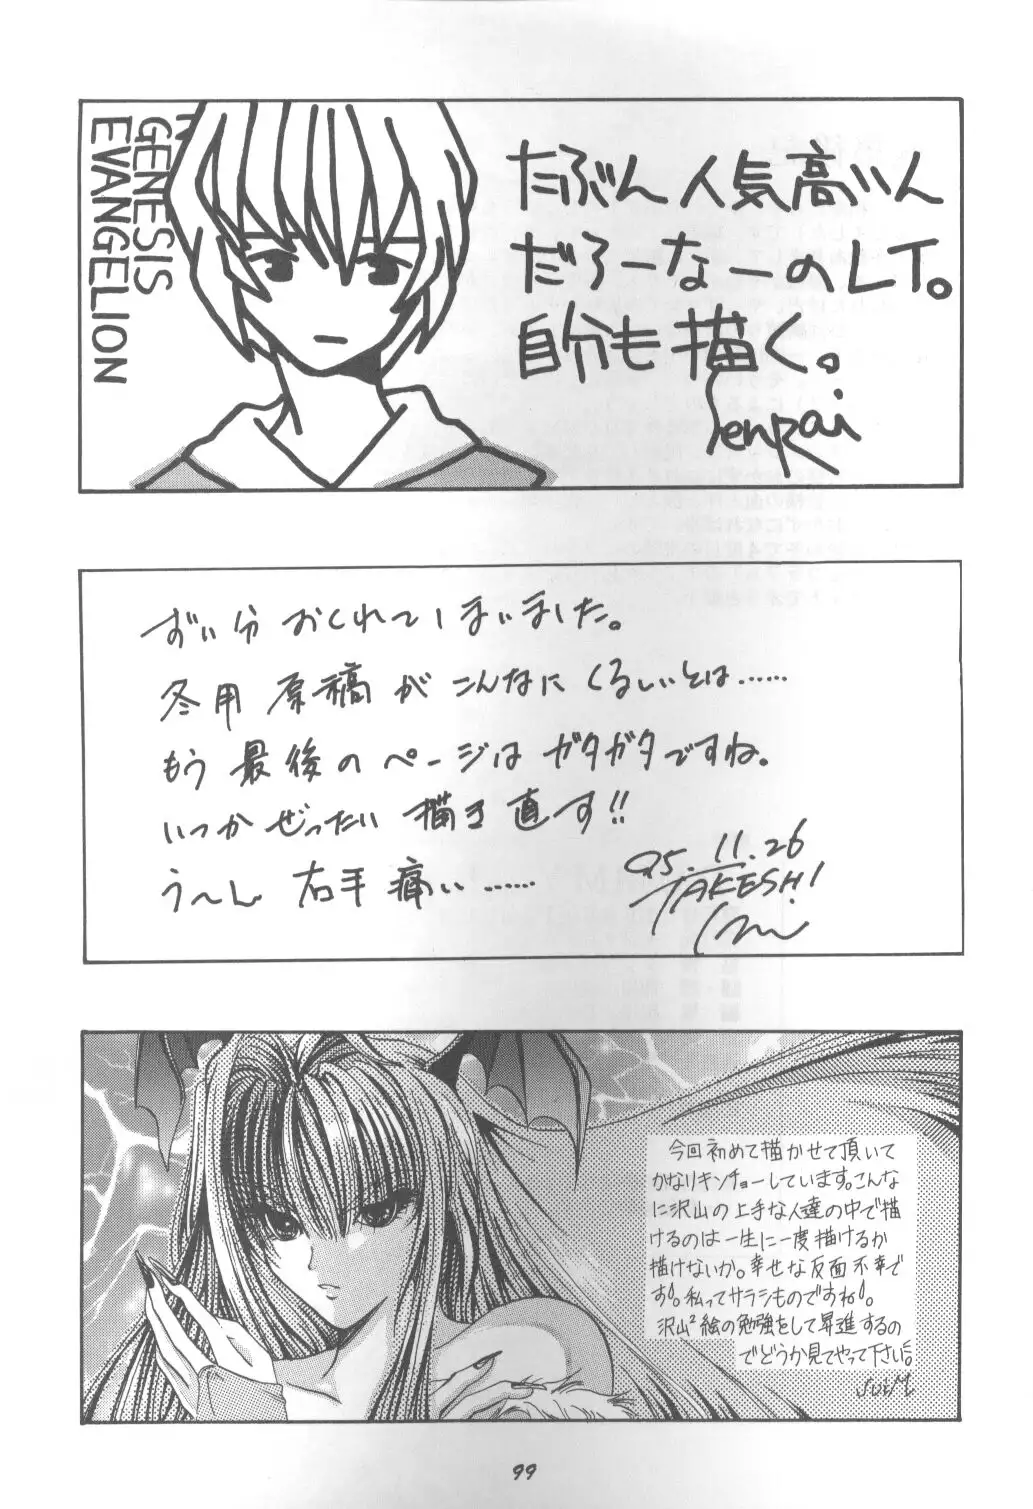 GENESIS
EVANGELION
たぶん人気高いん
だろーなーのLT。
自分も描く。
Senrai
ずい分おくれてしまいました。
冬用原稿がこんなにくるしいとは……
もう最後のページはガタガタですね。
いつかぜったい描き直す!!
う〜ん 右手痛い……
95.11.26
TAKESHI
今回初めて描かせて頂いて
かなりキンチョーしています。こんな
に沢山の上手な人達の中で描
けるのは一生に一度描けるか
描けないか。幸せな反面不幸で
す!。私ってサラシものですね!。
沢山²絵の勉強をして昇進するの
でどうか見てやって下さい。
SuiM
99